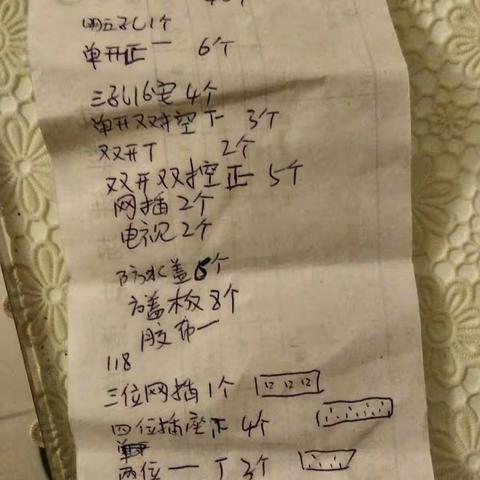 明五孔1个
单开正一 6个
三孔16安4个
单开双控空下 3个
双开丅 2个
双开双控正 5个
网插2个
电视2个
防水盖6个
盖板8个
胶布一
118
三位网插1个 12 12 12
四位插座正 4个
两位一 丅 3个